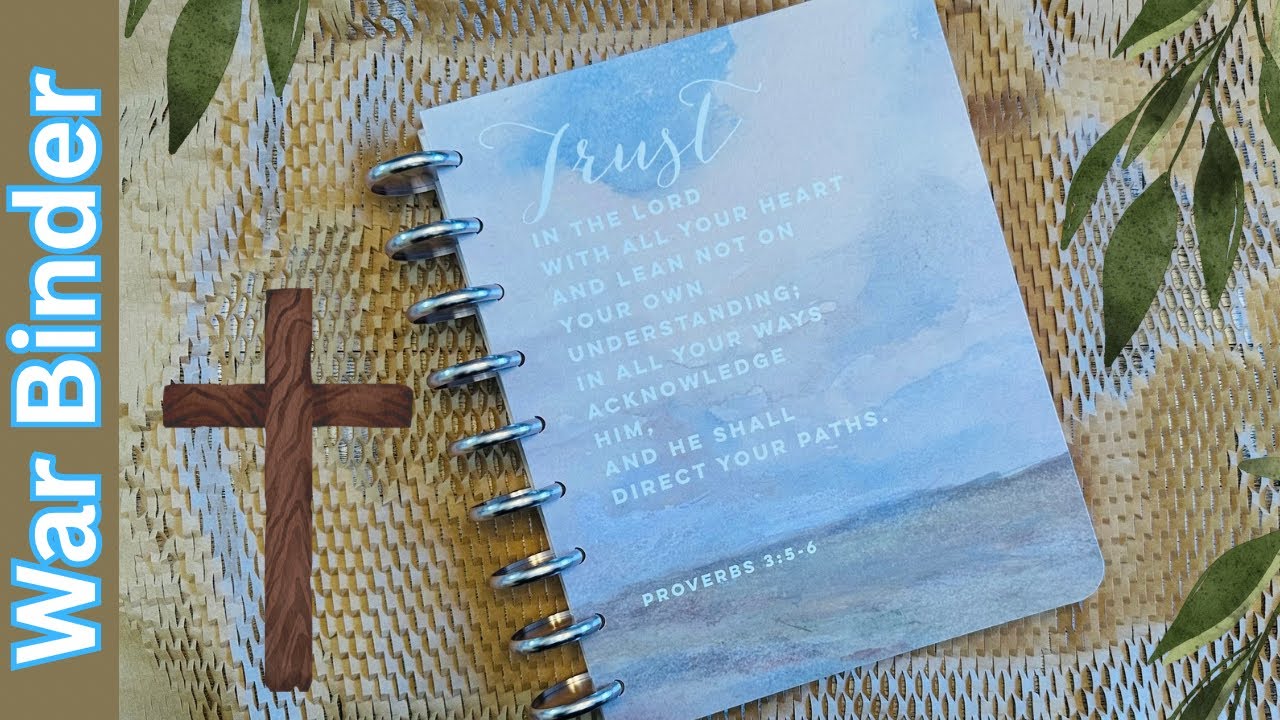 War Binder
Trust
IN THE LORD
WITH ALL YOUR HEART
AND LEAN NOT ON
YOUR OWN
UNDERSTANDING;
IN ALL YOUR WAYS
ACKNOWLEDGE
HIM,
AND HE SHALL
DIRECT YOUR PATHS.
PROVERBS 3:5-6